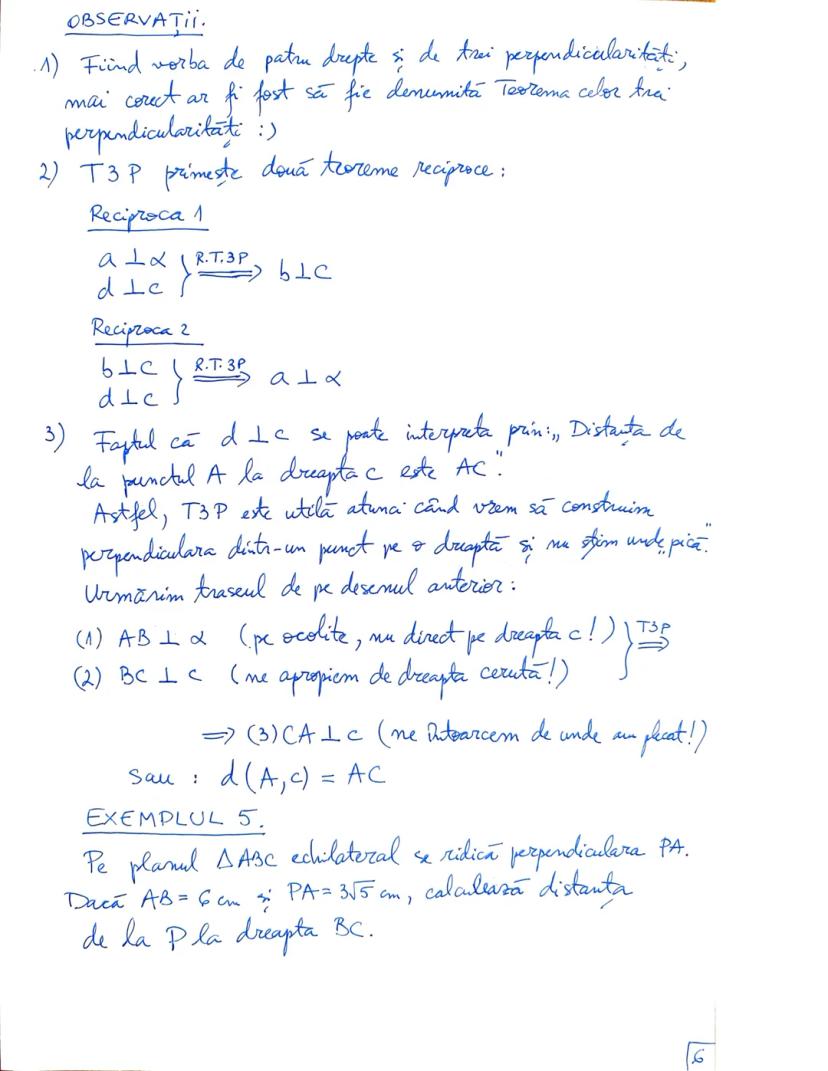 OBSERVAȚII.
1) Fiind vorba de patru drepte și de trei perpendicularități,
mai corect ar fi fost să fie denumită Teorema celor trei
perpendicularități :)
2) T3P primește două teoreme reciproce:
Reciproca 1
a ⊥ α } R.T.3P ⟹ b ⊥ c
d ⊥ c
Reciproca 2
b ⊥ c } R.T.3P ⟹ a ⊥ α
d ⊥ c
3) Faptul că d ⊥ c se poate interpreta prin: „Distanța de
la punctul A la dreapta c este AC".
Astfel, T3P este utilă atunci când vrem să construim
perpendiculara dintr-un punct pe o dreaptă și nu știm unde „pică".
Urmărim traseul de pe desenul anterior:
(1) AB ⊥ α (pe ocolite, nu direct pe dreapta c!) } T3P ⟹
(2) BC ⊥ c (ne apropiem de dreapta cerută!)
⟹ (3) CA ⊥ c (ne întoarcem de unde am plecat!)
sau : d(A,c) = AC
EXEMPLUL 5.
Pe planul ΔABC echilateral se ridică perpendiculara PA.
Dacă AB = 6 cm și PA = 3√5 cm, calculează distanța
de la P la dreapta BC.
6